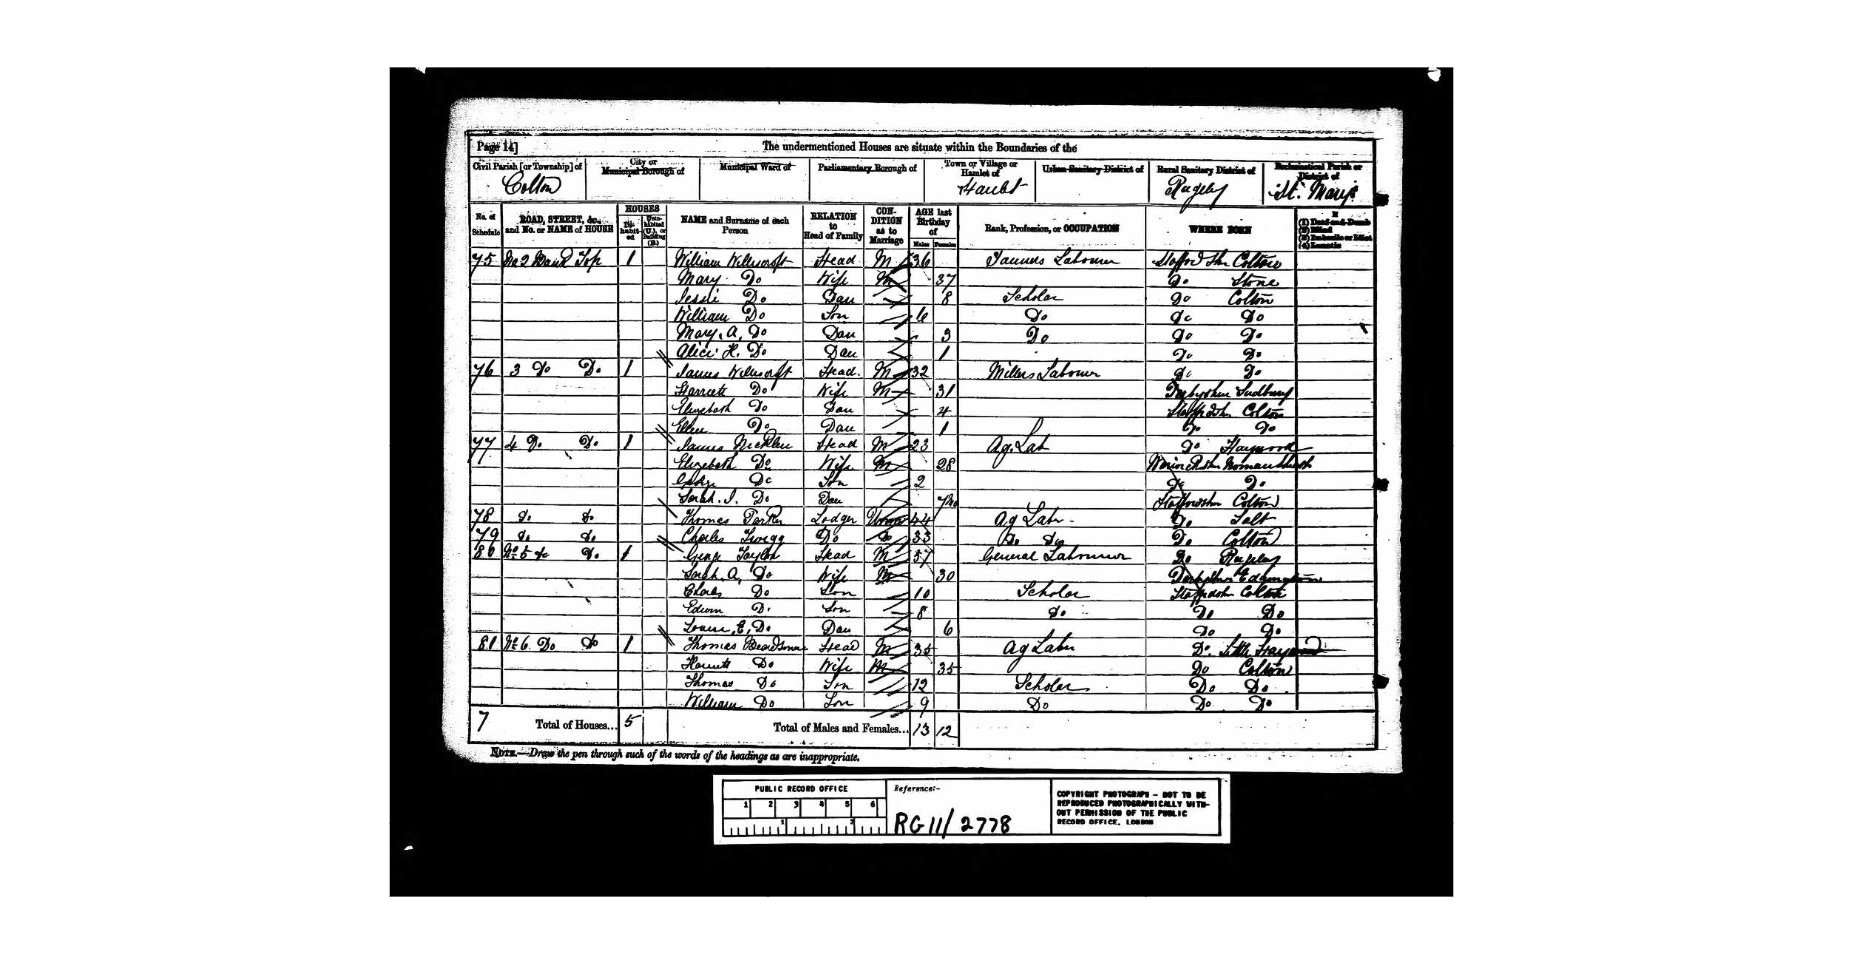 Page 14]
The undermentioned Houses are situate within the Boundaries of the
Civil Parish [or Township] of
City or Municipal Borough of
Municipal Ward of
Parliamentary Borough of
Town or Village or Hamlet of
Urban Sanitary District of
Rural Sanitary District of
Ecclesiastical Parish or District of
Colton Rugeley St. Mary's
No. of Schedule
ROAD, STREET, &c., and No. or NAME of HOUSE
HOUSES
Inhabited
Uninhabited (U.), or Building (B.)
NAME and Surname of each Person
RELATION to Head of Family
CONDITION as to Marriage
AGE last Birthday of
Males Females
Rank, Profession, or OCCUPATION
WHERE BORN
If
(1) Deaf-and-Dumb
(2) Blind
(3) Imbecile or Idiot
(4) Lunatic
75 No 2 Bank Top 1 William Head M 36 Labourer Colton
Mary Do Wife M 37 Do Stone
Jessie Do Dau 8 Scholar Do Colton
William Do Son 6 Do Do Do
Mary. A. Do Dau 3 Do Do Do
Alice H. Do Dau 1 Do Do
76 3 Do Do 1 James Head M 32 Millers Labourer Do Do
Harriett Do Wife M 31 Derbyshire Sudbury
Elizabeth Do Dau 4 Colton
Ellen Do Dau 1 Do Do
77 4 Do Do 1 James Head M 23 Ag. Lab Do Haywood
Elizabeth Do Wife M 28
Do Son 2 Do Do
Sarah. J. Do Dau 7Mo Colton
78 Do Do Thomas Parker Lodger 44 Ag Labr Do Salt
79 Do Do Charles Twigg Do Do 33 Do Do Do Colton
80 No 5 Do Do 1 George Taylor Head M 37 General Labourer Do Rugeley
Sarah. A. Do Wife M 30
Charles Do Son 10 Scholar Colton
Edwin Do Son 8 Do Do Do
Louisa, E, Do Dau 6 Do Do
81 No 6 Do Do 1 Thomas Head M 35 Ag Labr Do Little Haywood
Harriett Do Wife M 35 Do Colton
Thomas Do Son 12 Scholar Do Do
William Do Son 9 Do Do Do
7 Total of Houses... 5 Total of Males and Females... 13 12
NOTE.—Draw the pen through such of the words of the headings as are inappropriate.
PUBLIC RECORD OFFICE
1 2 3 4 5 6
1 2
Reference:-
RG 11/2778
COPYRIGHT PHOTOGRAPH - NOT TO BE
REPRODUCED PHOTOGRAPHICALLY WITH-
OUT PERMISSION OF THE PUBLIC
RECORD OFFICE, LONDON